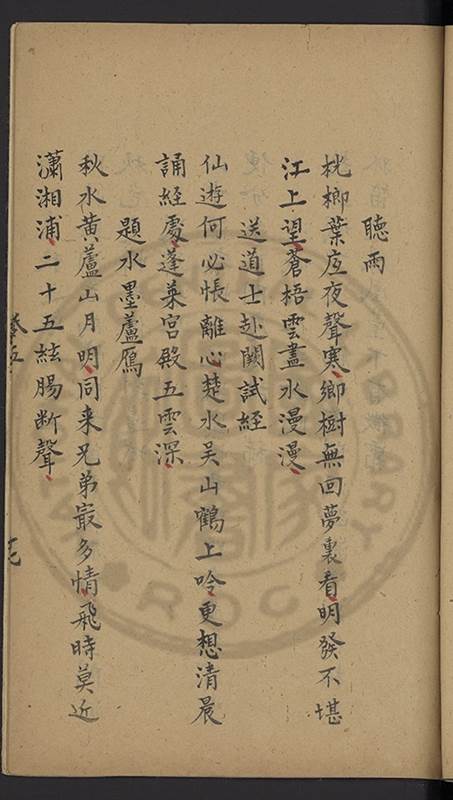 聽雨
桄榔葉底夜聲寒鄉樹無回夢裏看明發不堪
江上望蒼梧雲盡水漫漫
送道士赴闕試經
仙遊何必悵離心楚水吳山鶴上吟更想清晨
誦經處蓬萊宮殿五雲深
題水墨蘆鴈
秋水黃蘆山月明同来兄弟㝡多情飛時莫近
瀟湘浦二十五絃腸断聲